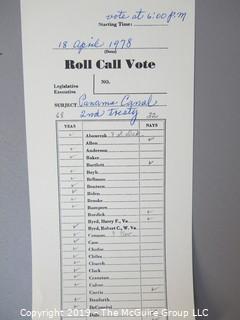 vote at 6:00 p.m
Starting Time:
18 April 1978
(Date)
Roll Call Vote
Legislative
Executive
NO.
SUBJECT Panama Canal
2nd Treaty
68 32
YEAS NAYS
Abourezk
Allen
Anderson
Baker
Bartlett
Bayh
Bellmon
Bentsen
Biden
Brooke
Bumpers
Burdick
Byrd, Harry F., Va.
Byrd, Robert C., W. Va.
Cannon
Case
Chafee
Chiles
Church
Clark
Cranston
Culver
Curtis
Danforth
DeConcini
Copyright 2019 - The McGuire Group LLC